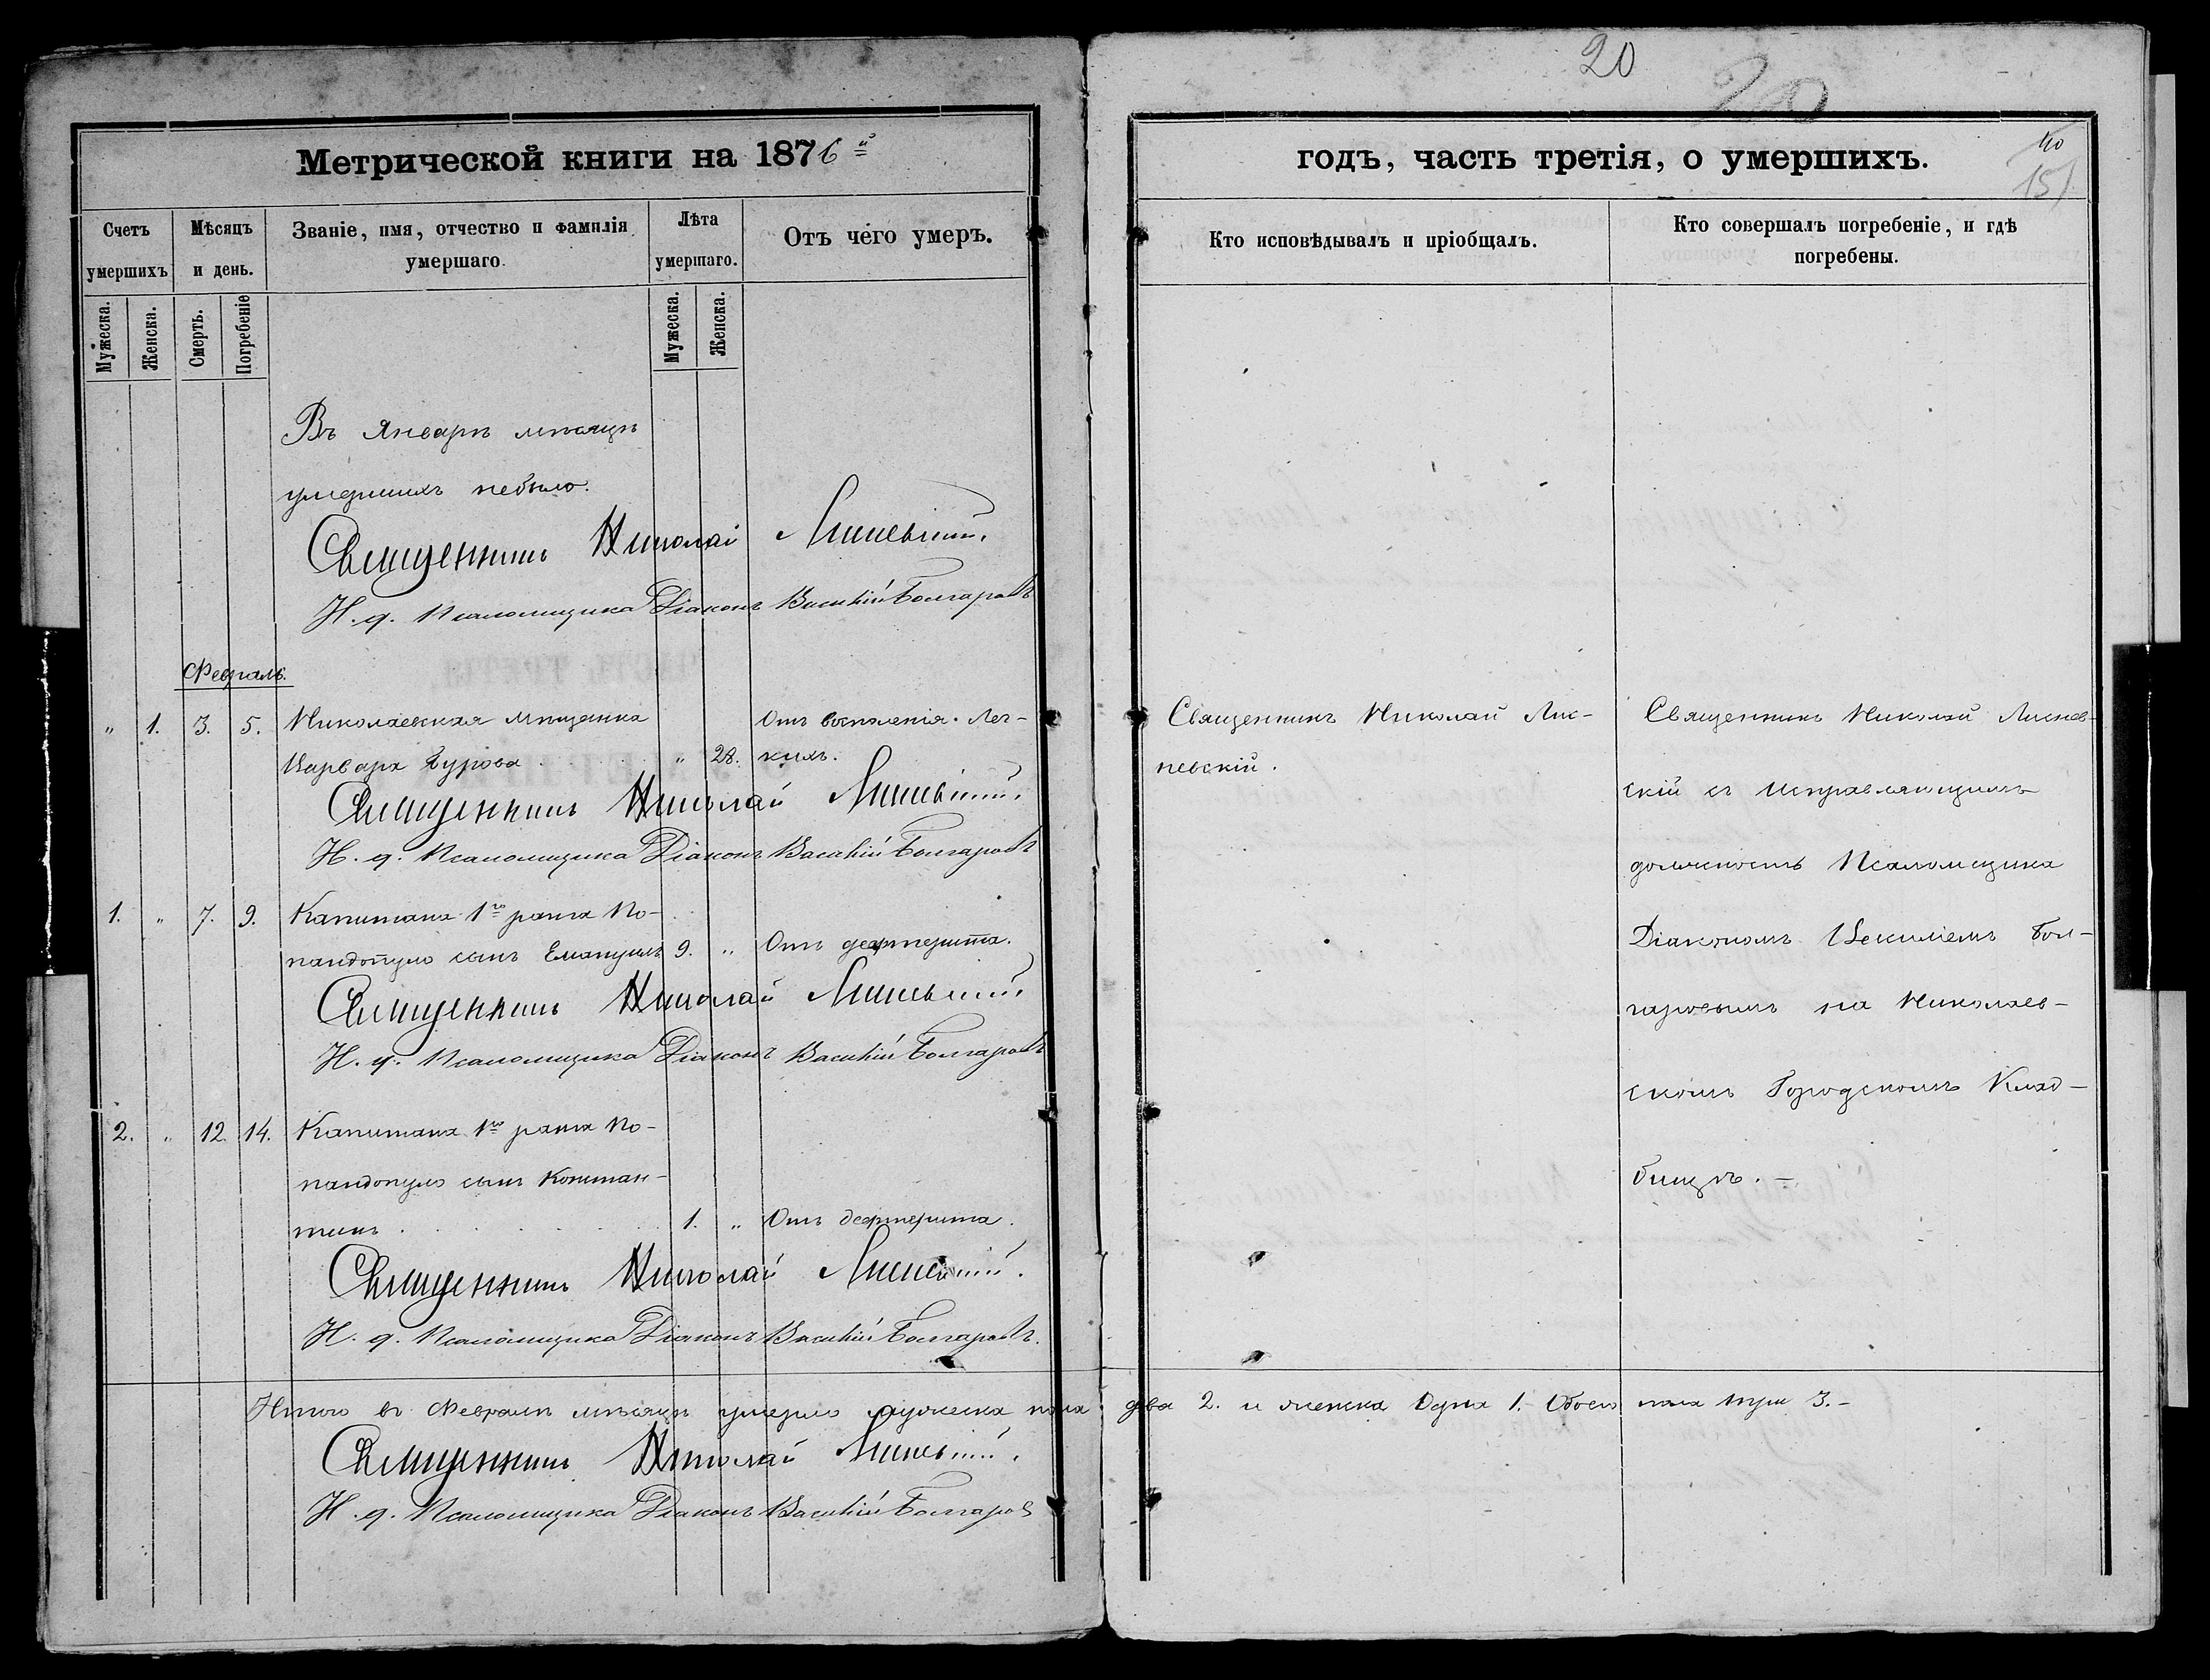 20
20
Метрической книги на 1876й
годъ, часть третія, о умершихъ.
151
Счетъ умершихъ
Мѣсяцъ и день.
Званіе, имя, отчество и фамилія умершаго.
Лѣта умершаго.
Отъ чего умеръ.
Кто исповѣдывалъ и пріобщалъ.
Кто совершалъ погребеніе, и гдѣ погребены.
Мужеска.
Женска.
Смерть.
Погребеніе
Мужеска.
Женска.
Въ Январѣ мѣсяцѣ
умершихъ небыло.
Священникъ Николай
И. д. Псаломщика Діаконъ Василій Болгаровъ
Февраль.
" 1. 3. 5. Николаевская мѣщанка Отъ воспаленія Лег-
Варвара Бурова " 28. кихъ.
Священникъ Николай
И. д. Псаломщика Діаконъ Василій Болгаровъ
1. " 7. 9. Капитана 1го ранга По-
пандопуло сынъ Емануилъ 9. " Отъ дефтерита.
Священникъ Николай
И. д. Псаломщика Діаконъ Василій Болгаровъ
2. " 12. 14. Капитана 1го ранга По-
пандопуло сынъ Констан-
тинъ 1. " Отъ дефтерита.
Священникъ Николай
И. д. Псаломщика Діаконъ Василій Болгаровъ.
Священникъ Николай Лис-
невскій.
Священникъ Николай Лиснев-
скій съ Исправляющимъ
должность Псаломщика
Діакономъ Василіемъ Бол-
гаровымъ на Николаев-
скомъ Городскомъ Клад-
бищѣ. –
Итого въ Февралѣ мѣсяцѣ умерло мужеска пола два 2. и женска Одна 1. Обоего пола три 3. –
Священникъ Николай
И. д. Псаломщика Діаконъ Василій Болгаровъ